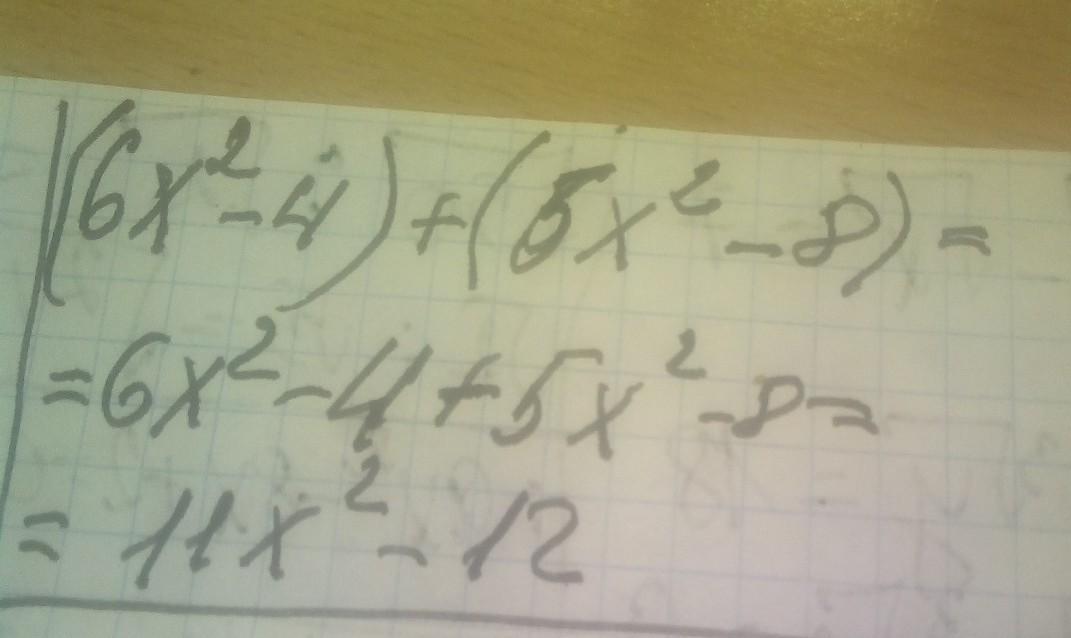 (6x²-4)+(5x²-8)=
=6x²-4+5x²-8=
=11x²-12